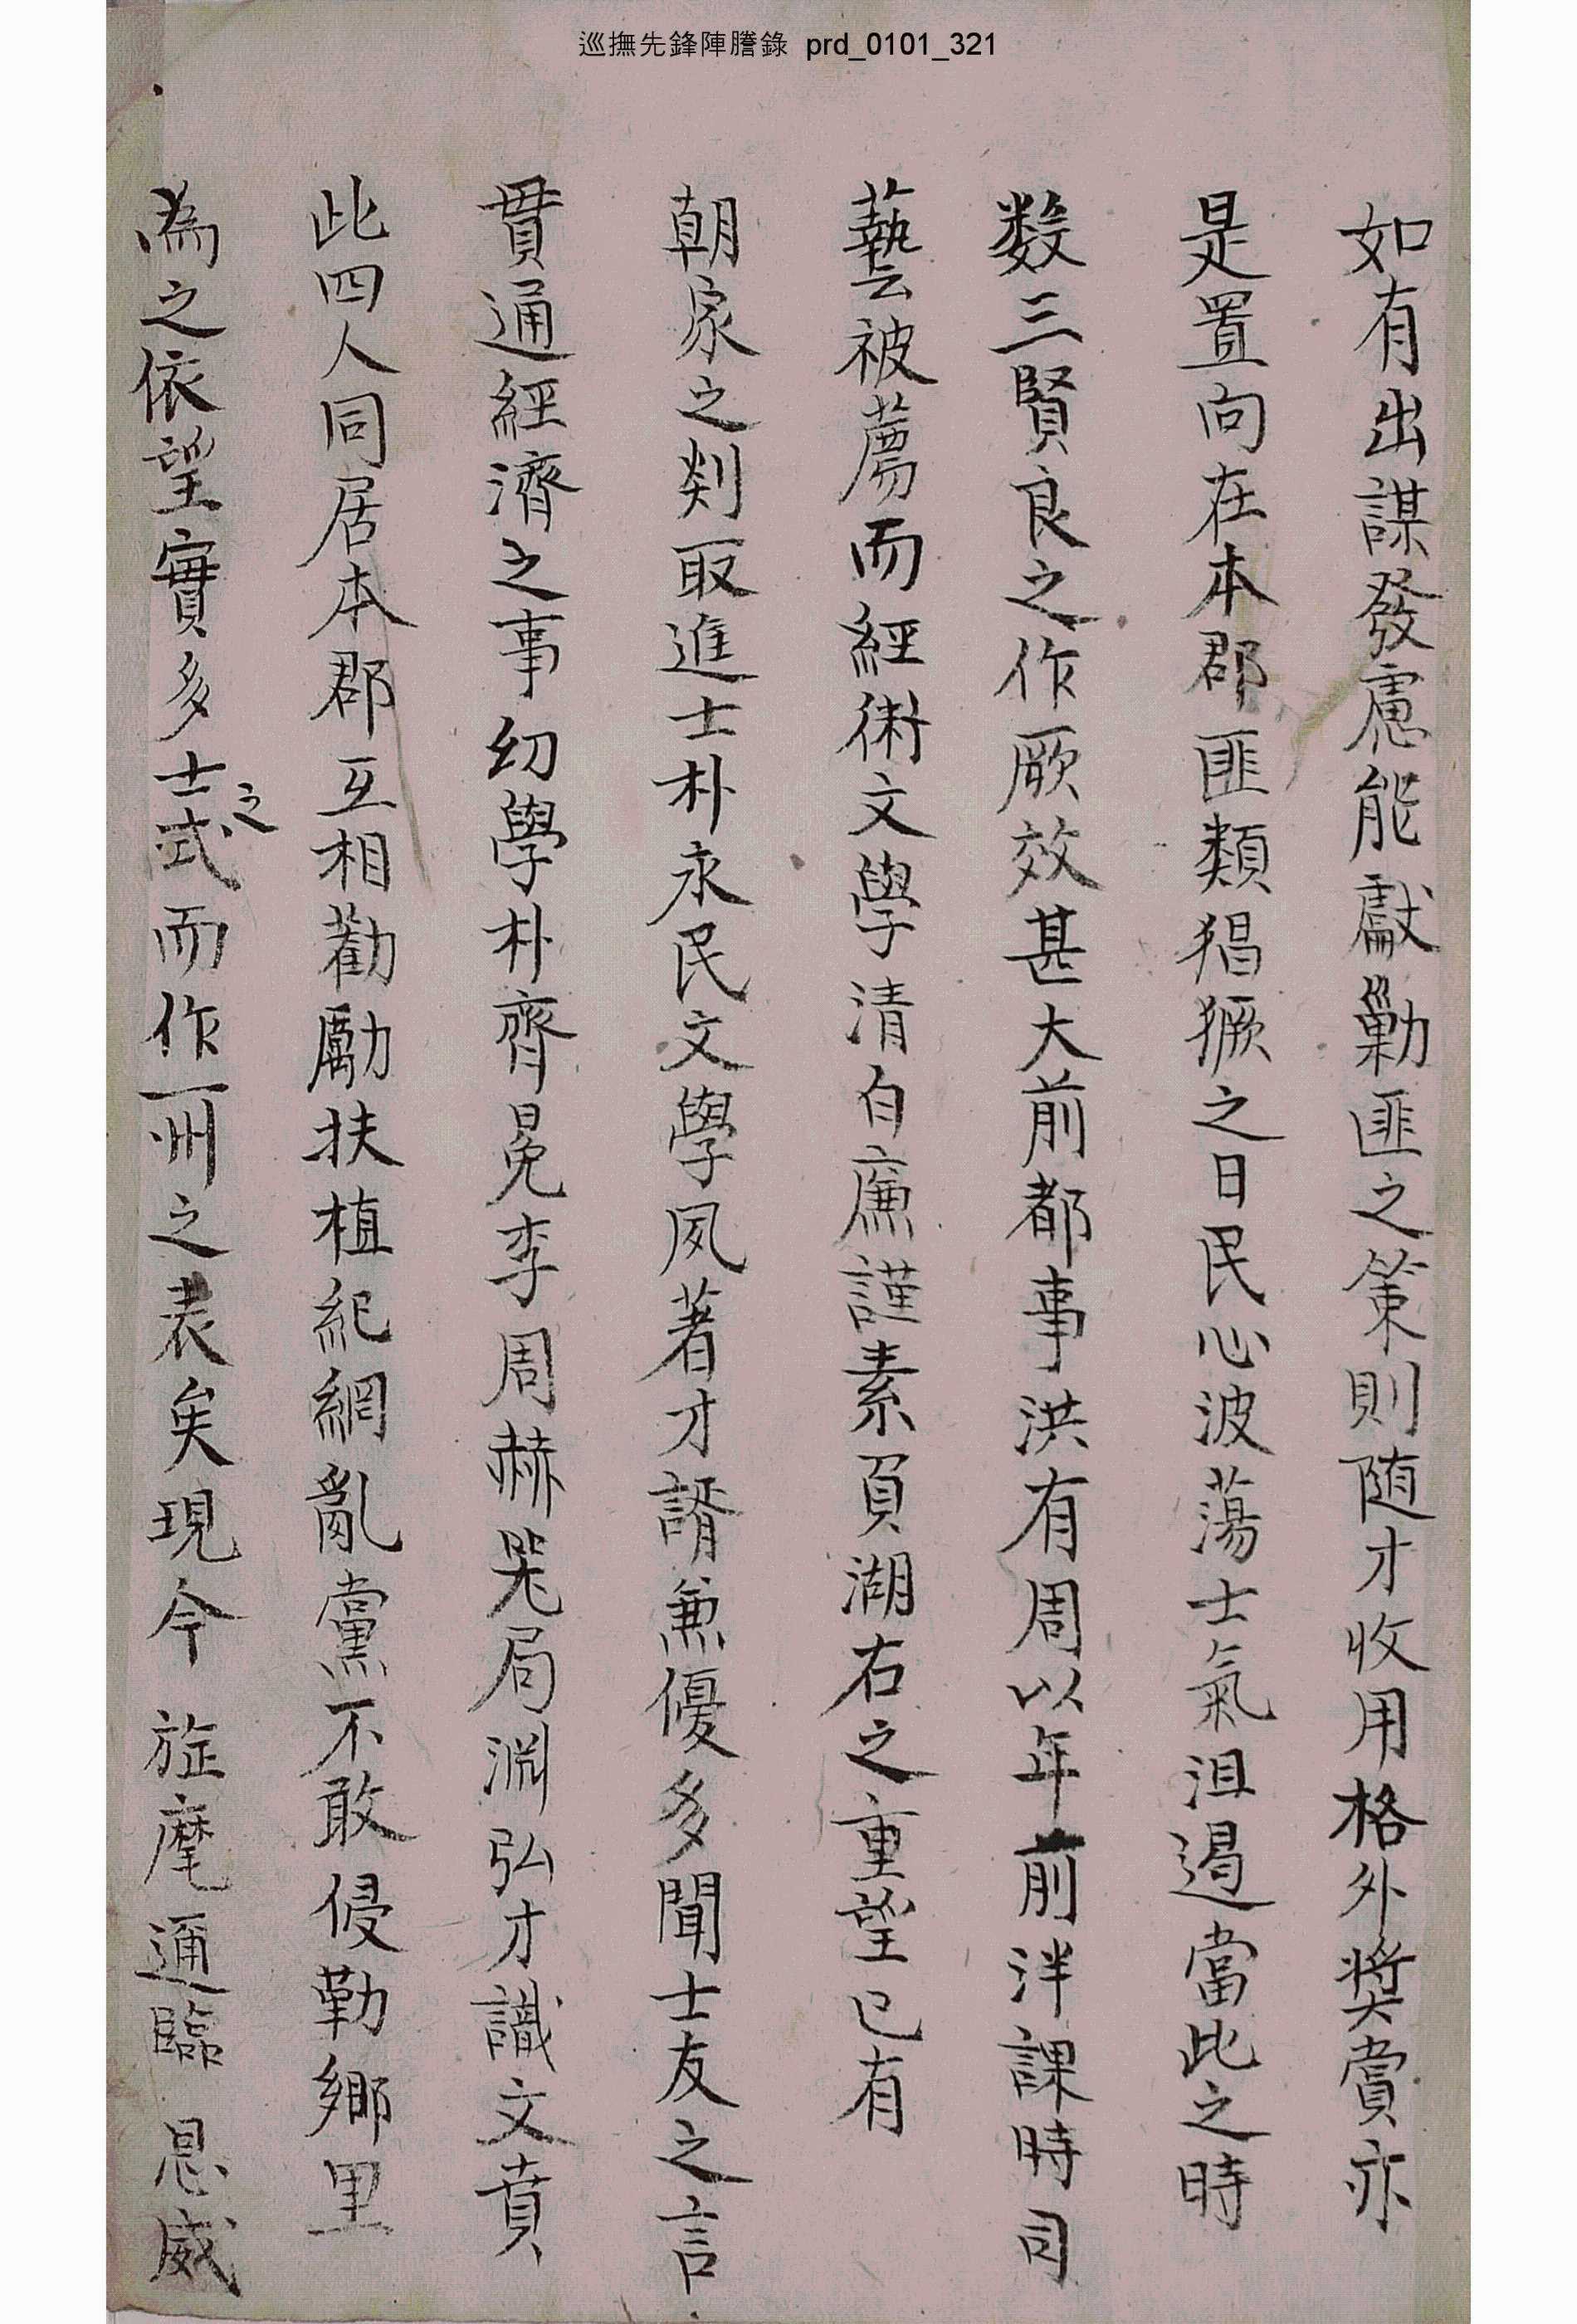 巡撫先鋒陣謄錄 prd_0101_321
如有出謀發慮能獻勦匪之策則随才收用格外奬賞亦
是置向在本郡匪類猖獗之日民心波蕩士氣沮遏當此之時
数三賢良之作厥效甚大前都事洪有周以年前泮課時司
藝被薦而經術文學清白廉謹素負湖右之重望已有
朝家之剡取進士朴永民文學夙著才諝兼優多聞士友之言
貫通經濟之事幼學朴齊晃李周赫器局淵弘才識文賁
此四人同居本郡互相勸勵扶植紀綱亂黨不敢侵勒鄉里
為之依望實多士之式而作一州之表矣現今 旌麾遍臨 恩威